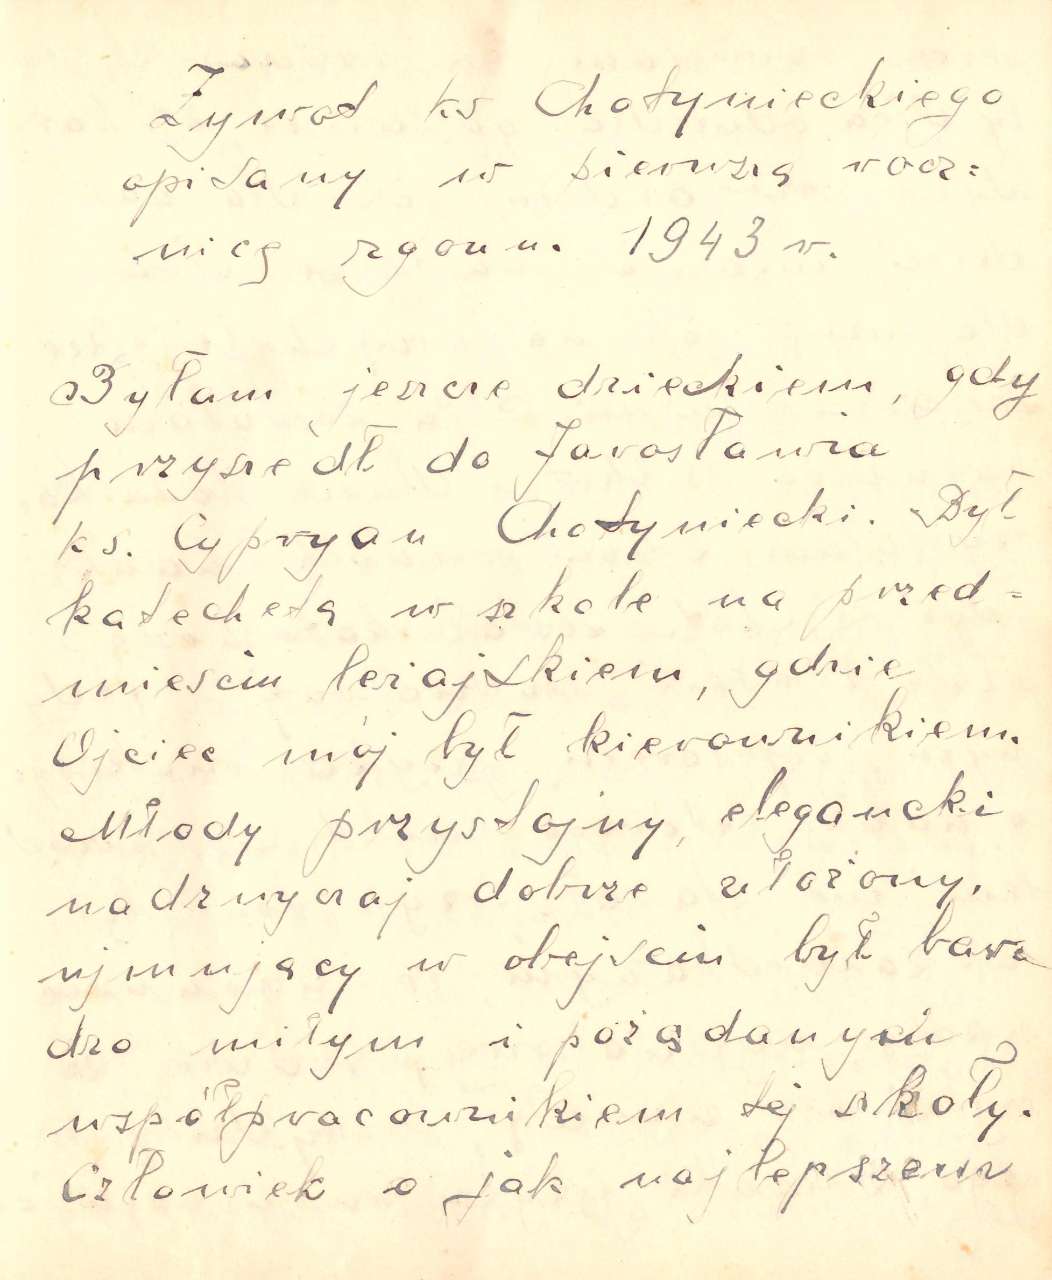 Żywot ks Chotynieckiego
opisany w pierwszą rocz=
nicę zgonu. 1943 r.
Byłam jeszcze dzieckiem, gdy
przyszedł do Jarosławia
ks. Cypryan Chotyniecki. Był
katechetą w szkole na przed=
mieściu leżajskiem, gdzie
Ojciec mój był kierownikiem.
Młody przystojny, elegancki
nadzwyczaj dobrze ułożony,
ujmujący w obejściu był bar=
dzo miłym i pożądanym
współpracownikiem tej szkoły.
Człowiek o jak najlepszem